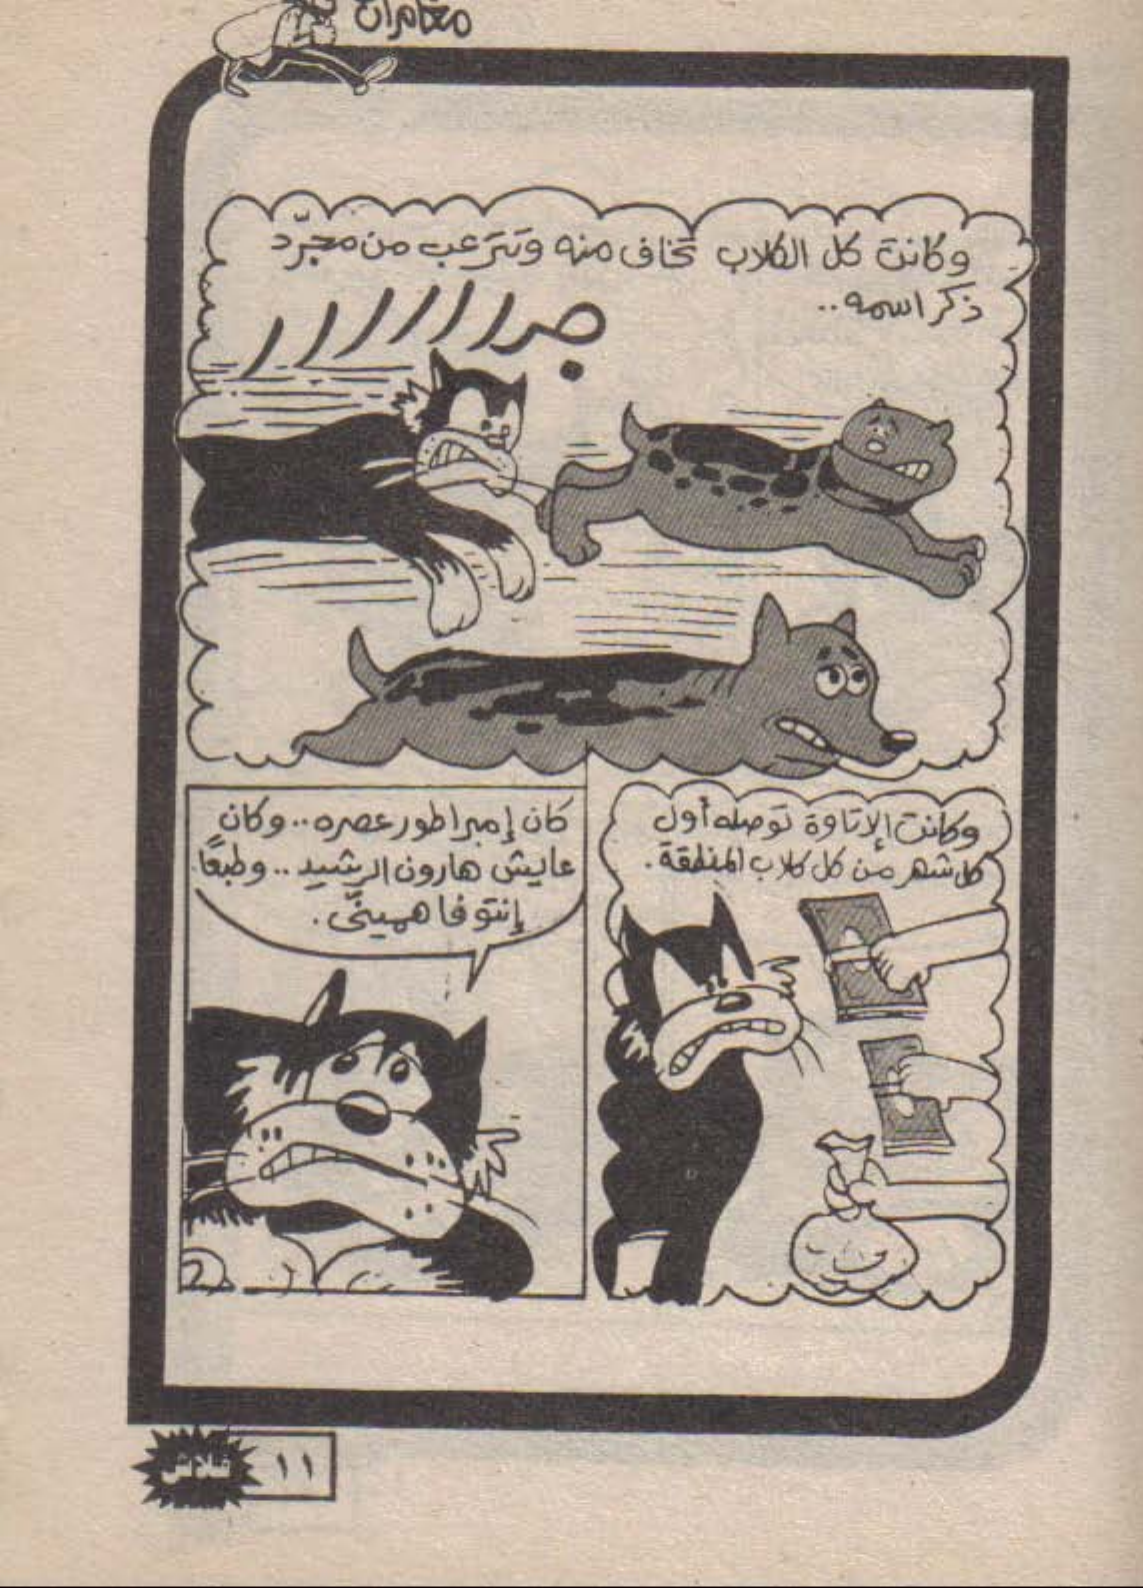 مغامرات
وكانت كل الكلاب تخاف منه وتترعب من مجرّد
ذكر اسمه..
جرراااااار
وكانت الإتاوة توصله أول
كل شهر من كل كلاب المنطقة.
كان إمبراطور عصره.. وكان
عايش هارون الرشيد.. وطبعًا
إنتو فاهمينّى.
١١
فلاش